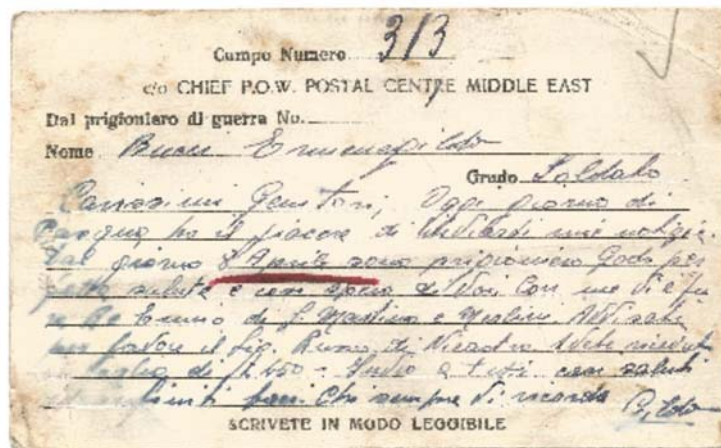 Campo Numero 313
c/o CHIEF P.O.W. POSTAL CENTRE MIDDLE EAST
Dal prigioniero di guerra No.
Nome Bucci Ermenegildo
Grado Soldato
Carissimi Genitori, Oggi giorno di
Pasqua ho il piacere di inviarvi mie notizie.
Dal giorno 8 Aprile sono prigioniero Godo
salute e così spero di Voi. Con me vi è
di S. Martino e Merlino. Avvisate
per favore il Sig. Russo di Nicastro. Avete ricevuto
vaglia di £ 450 - Invio a tutti cari saluti
baci. Chi sempre Vi ricorda Gildo
SCRIVETE IN MODO LEGGIBILE